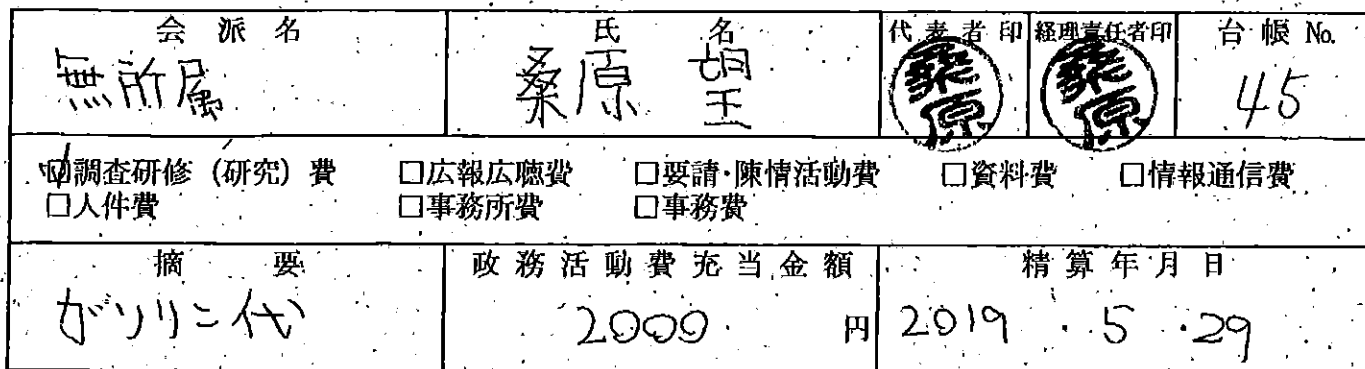 会派名 氏名 代表者印 経理責任者印 台帳No.
無所属 桑原 望 桑原 桑原 45
☑調査研修（研究）費 □広報広聴費 □要請・陳情活動費 □資料費 □情報通信費
□人件費 □事務所費 □事務費
摘要 政務活動費充当金額 精算年月日
ガソリン代 2000 円 2019.5.29